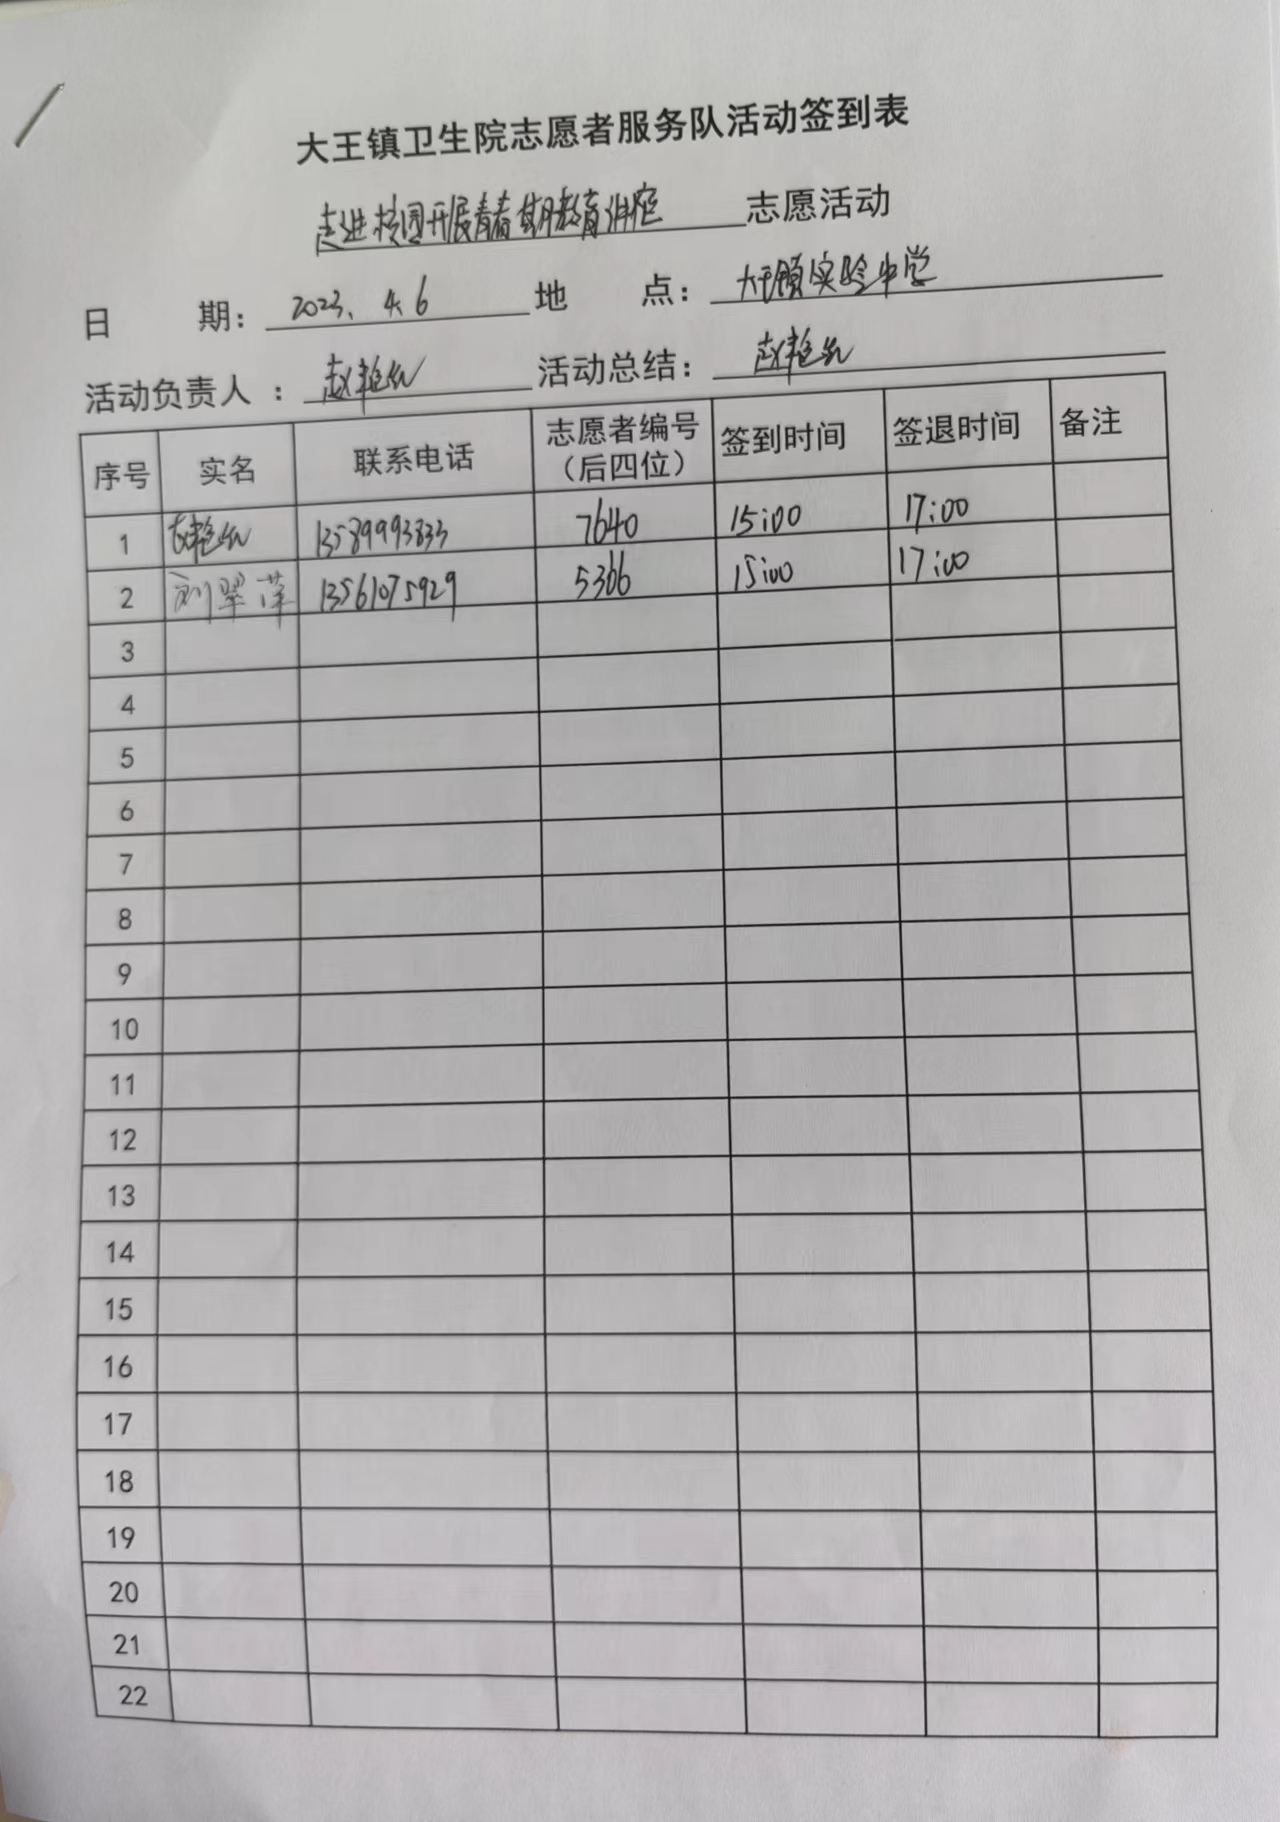 大王镇卫生院志愿者服务队活动签到表
走进校园开展青春期教育讲座 志愿活动
日 期：2023.4.6 地 点：大王镇实验中学
活动负责人：赵艳 活动总结：赵艳
序号 实名 联系电话 志愿者编号（后四位） 签到时间 签退时间 备注
1 13589993833 7640 15:00 17:00
2 刘翠萍 13561075929 5366 15:00 17:00
3
4
5
6
7
8
9
10
11
12
13
14
15
16
17
18
19
20
21
22